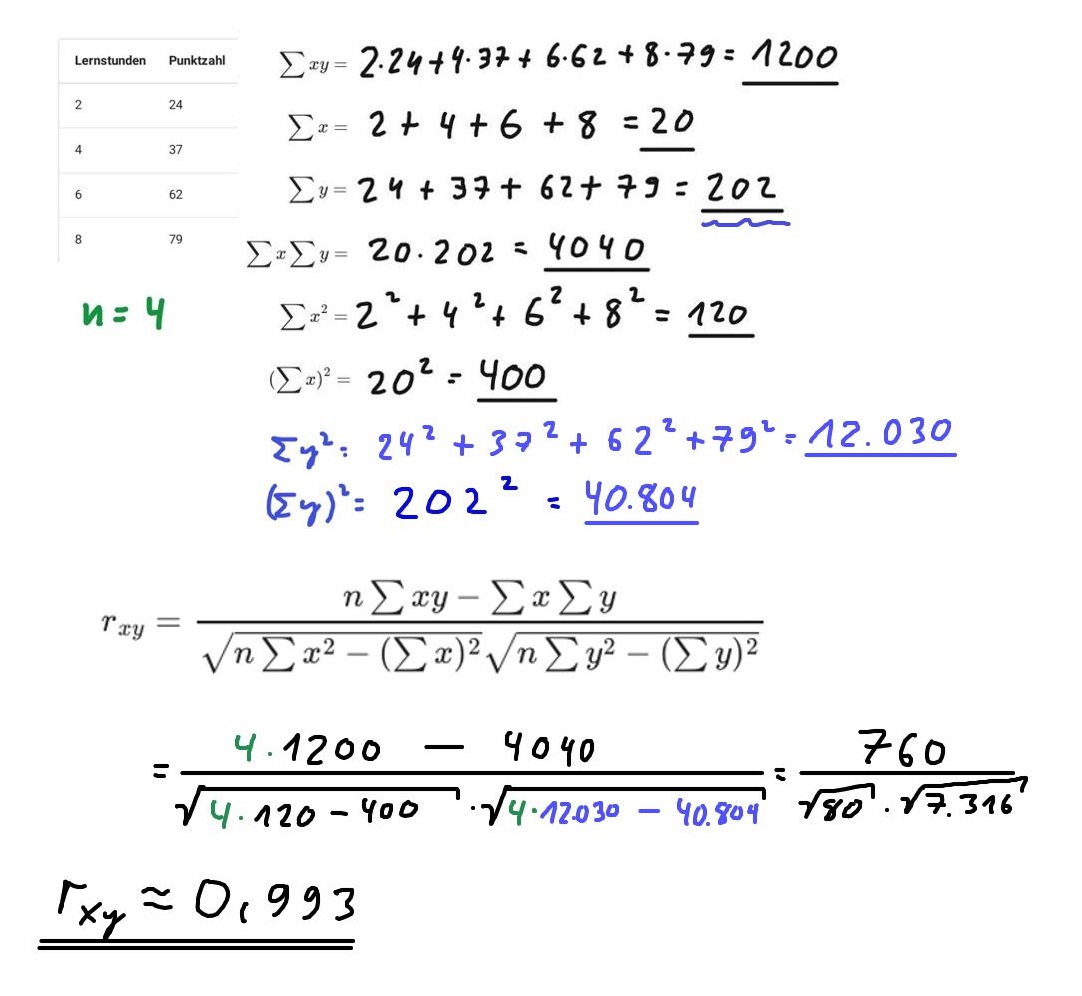 Lernstunden Punktzahl
2 24
4 37
6 62
8 79
n = 4
∑xy = 2·24+4·37+6·62+8·79 = 1200
∑x = 2 + 4 + 6 + 8 = 20
∑y = 24 + 37 + 62 + 79 = 202
∑x∑y = 20·202 = 4040
∑x² = 2² + 4² + 6² + 8² = 120
(∑x)² = 20² = 400
Σy² = 24² + 37² + 62² + 79² = 12.030
(Σy)² = 202² = 40.804
r_xy = (n∑xy − ∑x∑y) / (√(n∑x² − (∑x)²) √(n∑y² − (∑y)²))
= (4·1200 − 4040) / (√(4·120 − 400) · √(4·12.030 − 40.804)) = 760 / (√80 · √7.316)
r_xy ≈ 0,993